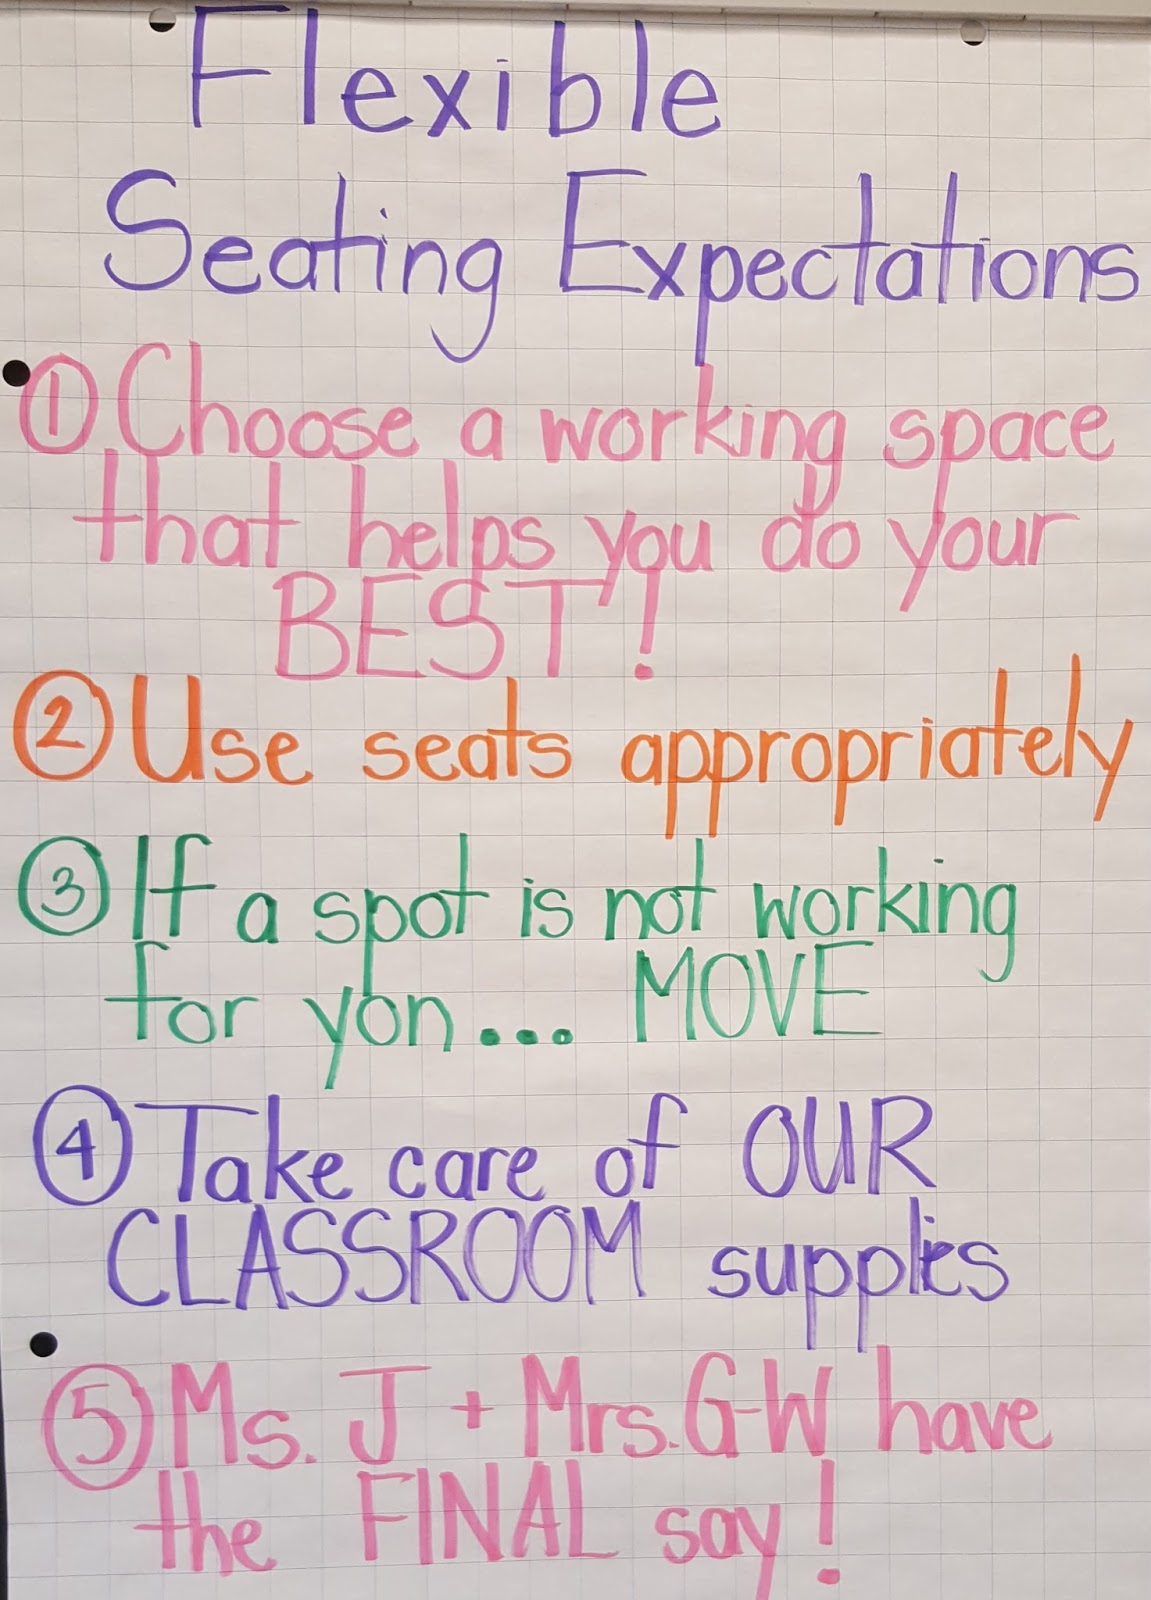 Flexible
Seating Expectations
① Choose a working space
that helps you do your
BEST!
② Use seats appropriately
③ If a spot is not working
for you... MOVE
④ Take care of OUR
CLASSROOM supplies
⑤ Ms. J + Mrs. G-W have
the FINAL say!